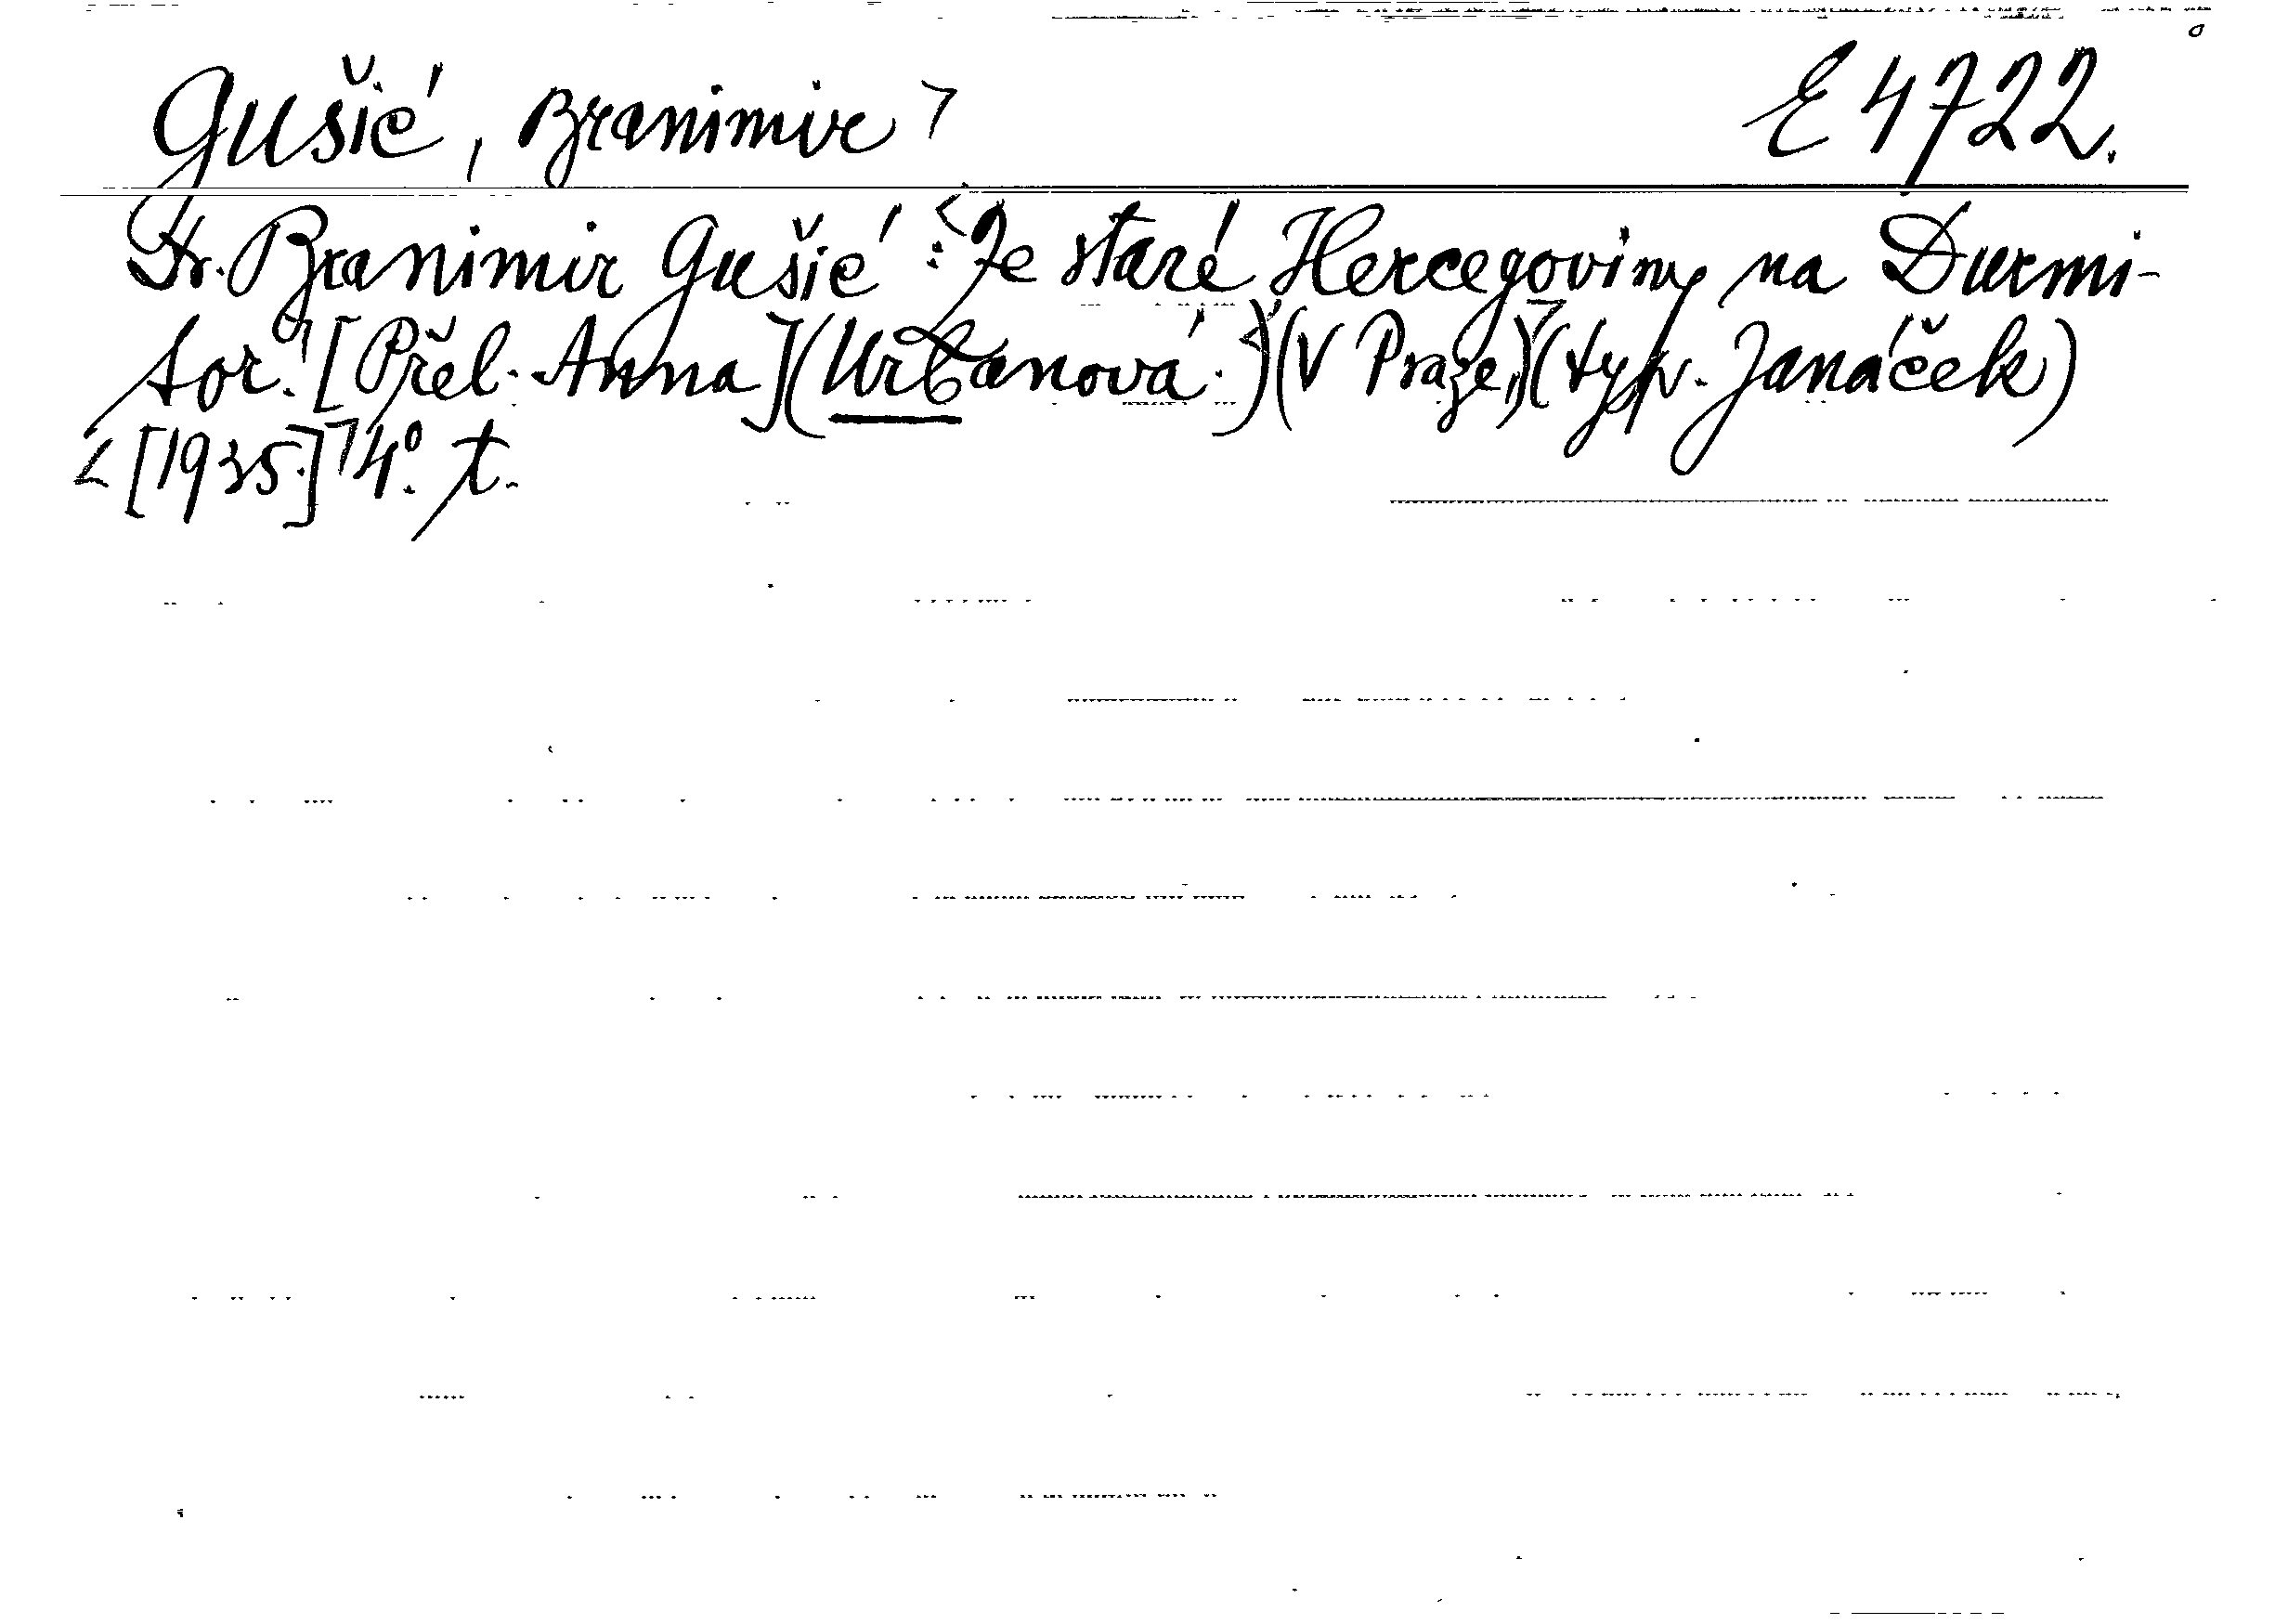 Gušić, Branimir ⁊ E 4722.
Dr. Branimir Gušić: <Ze staré Hercegoviny na Durmi-
tor. ⁊ [Přel. Anna] (Urbanová.) <(V Praze,) ⁊ (typ. Janáček)
< [1935.] ⁊ 4°. t.